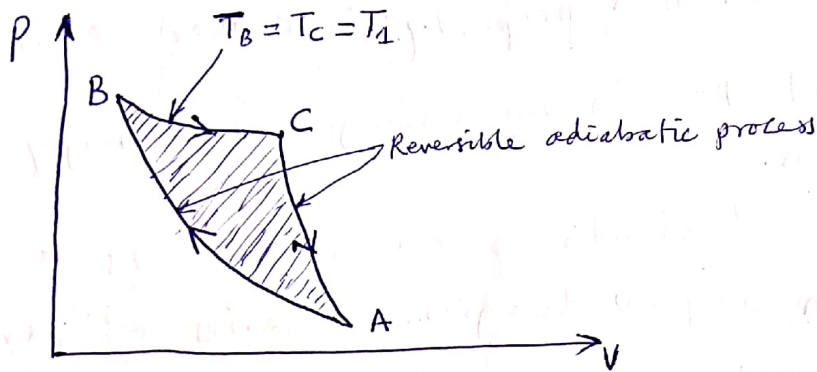 P
T_B = T_C = T_1
B
C
Reversible adiabatic process
A
V